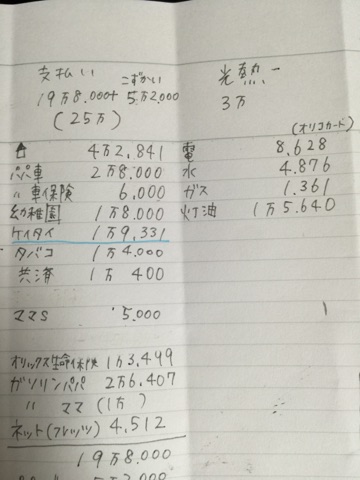 支払い　こずかい
19万8.000+ 5万2.000
(25万)
🏠 4万2.841
パパ車 2万8.000
〃 車保険 6.000
幼稚園 1万8.000
ケイタイ 1万9.331
タバコ 1万4.000
共済 1万 400
ママS 5.000
オリックス生命保険 1万3.499
ガソリンパパ 2万6.407
〃 ママ (1万)
ネット(フレッツ) 4.512
19万8.000
光熱一
3万
(オリコカード)
電 8.628
水 4.876
ガス 1.361
灯油 1万5.640